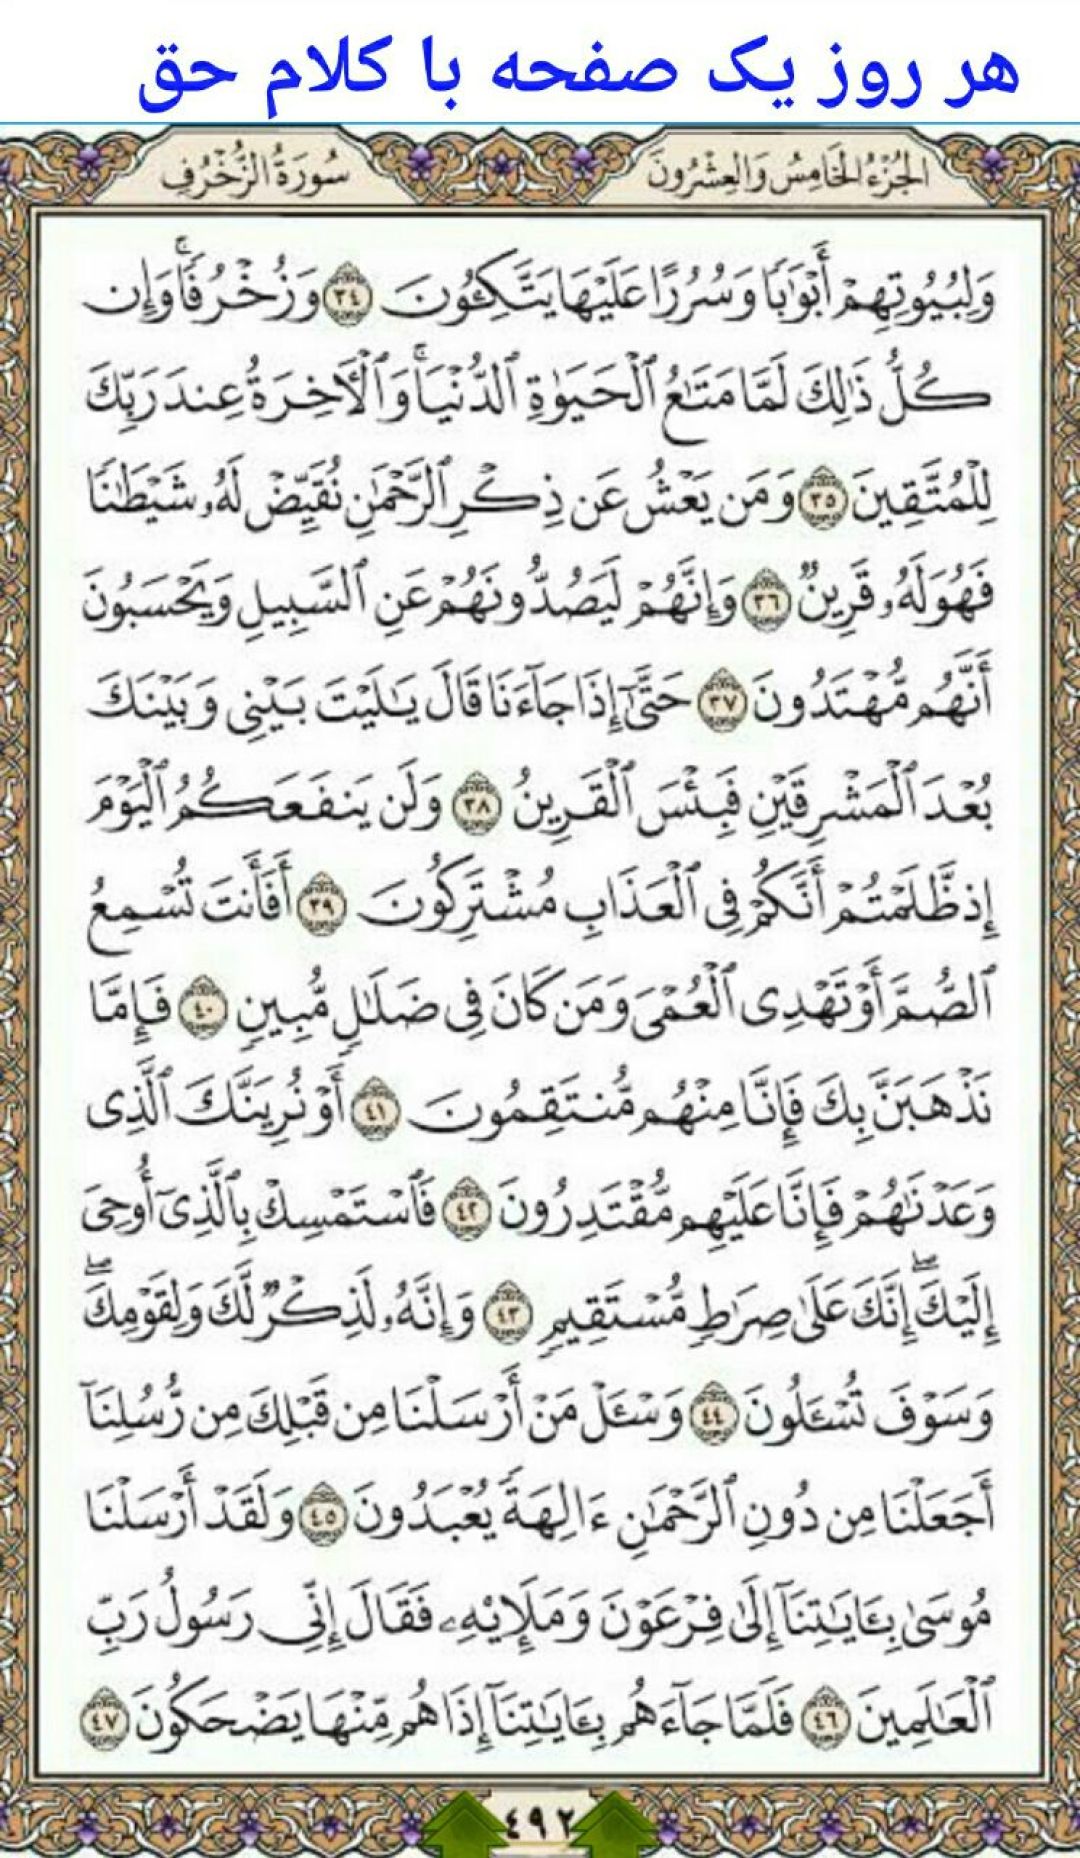 هر روز یک صفحه با کلام حق
الجُزءُ الخَامِسُ وَالعِشْرُونَ
سُورَةُ الزُّخْرُفِ
وَلِبُيُوتِهِمْ أَبْوَٰبًا وَسُرُرًا عَلَيْهَا يَتَّكِـُٔونَ ٣٤ وَزُخْرُفًاۚ وَإِن
كُلُّ ذَٰلِكَ لَمَّا مَتَٰعُ ٱلْحَيَوٰةِ ٱلدُّنْيَاۚ وَٱلْأَخِرَةُ عِندَ رَبِّكَ
لِلْمُتَّقِينَ ٣٥ وَمَن يَعْشُ عَن ذِكْرِ ٱلرَّحْمَٰنِ نُقَيِّضْ لَهُۥ شَيْطَٰنًا
فَهُوَ لَهُۥ قَرِينٌ ٣٦ وَإِنَّهُمْ لَيَصُدُّونَهُمْ عَنِ ٱلسَّبِيلِ وَيَحْسَبُونَ
أَنَّهُم مُّهْتَدُونَ ٣٧ حَتَّىٰٓ إِذَا جَآءَنَا قَالَ يَٰلَيْتَ بَيْنِى وَبَيْنَكَ
بُعْدَ ٱلْمَشْرِقَيْنِ فَبِئْسَ ٱلْقَرِينُ ٣٨ وَلَن يَنفَعَكُمُ ٱلْيَوْمَ
إِذ ظَّلَمْتُمْ أَنَّكُمْ فِى ٱلْعَذَابِ مُشْتَرِكُونَ ٣٩ أَفَأَنتَ تُسْمِعُ
ٱلصُّمَّ أَوْ تَهْدِى ٱلْعُمْىَ وَمَن كَانَ فِى ضَلَٰلٍ مُّبِينٍ ٤٠ فَإِمَّا
نَذْهَبَنَّ بِكَ فَإِنَّا مِنْهُم مُّنتَقِمُونَ ٤١ أَوْ نُرِيَنَّكَ ٱلَّذِى
وَعَدْنَٰهُمْ فَإِنَّا عَلَيْهِم مُّقْتَدِرُونَ ٤٢ فَٱسْتَمْسِكْ بِٱلَّذِىٓ أُوحِىَ
إِلَيْكَۖ إِنَّكَ عَلَىٰ صِرَٰطٍ مُّسْتَقِيمٍ ٤٣ وَإِنَّهُۥ لَذِكْرٌ لَّكَ وَلِقَوْمِكَۖ
وَسَوْفَ تُسْـَٔلُونَ ٤٤ وَسْـَٔلْ مَنْ أَرْسَلْنَا مِن قَبْلِكَ مِن رُّسُلِنَآ
أَجَعَلْنَا مِن دُونِ ٱلرَّحْمَٰنِ ءَالِهَةً يُعْبَدُونَ ٤٥ وَلَقَدْ أَرْسَلْنَا
مُوسَىٰ بِـَٔايَٰتِنَآ إِلَىٰ فِرْعَوْنَ وَمَلَإِيْهِۦ فَقَالَ إِنِّى رَسُولُ رَبِّ
ٱلْعَٰلَمِينَ ٤٦ فَلَمَّا جَآءَهُم بِـَٔايَٰتِنَآ إِذَا هُم مِّنْهَا يَضْحَكُونَ ٤٧
٤٩٢